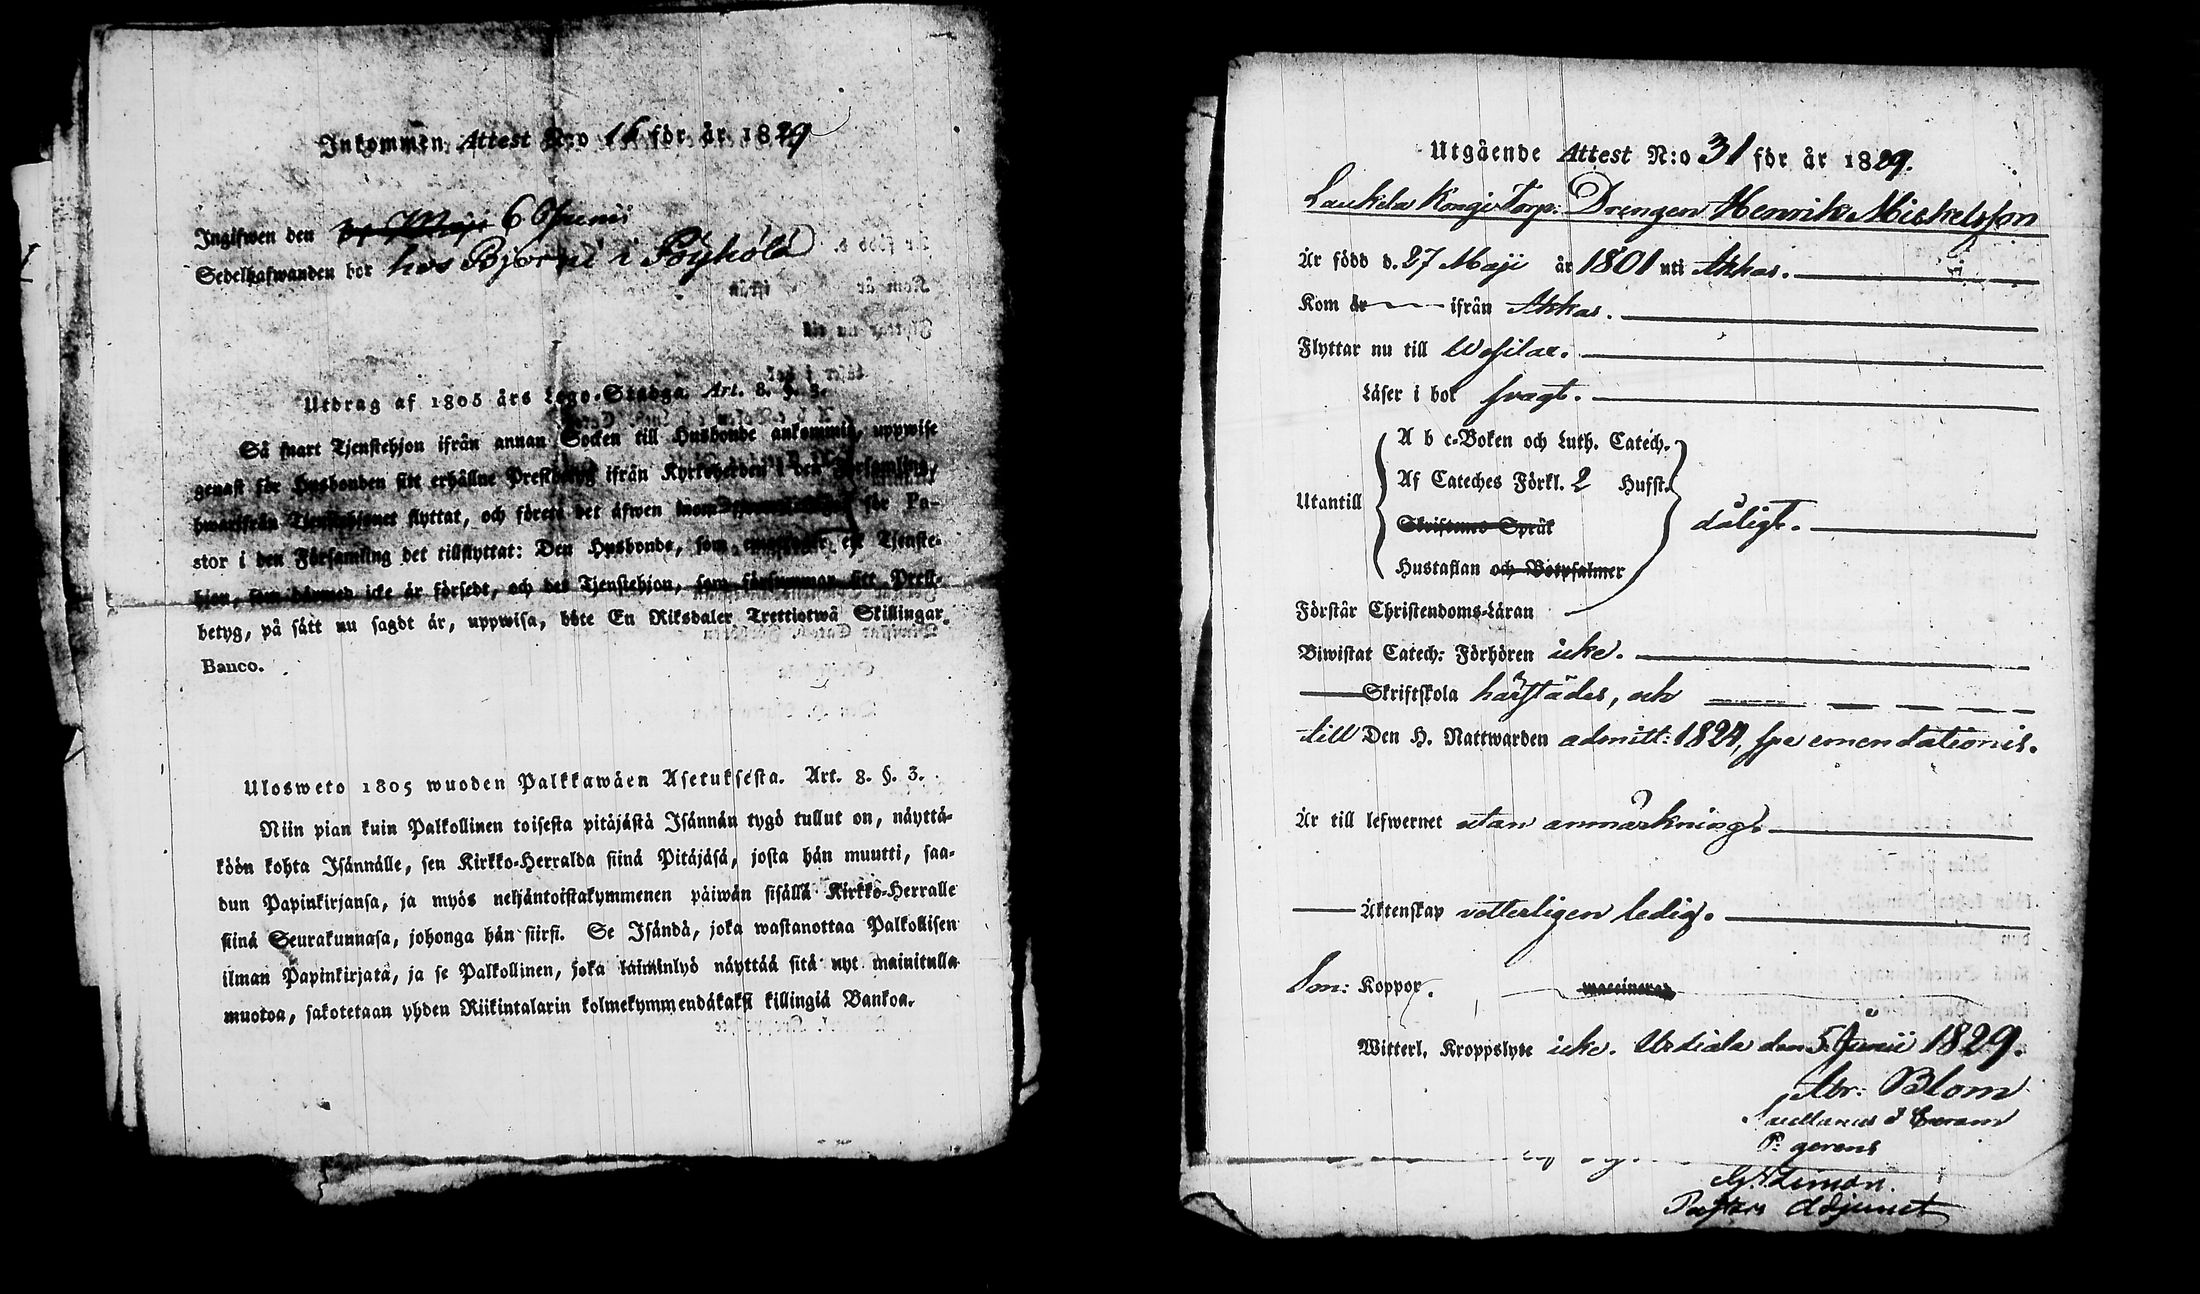 Inkommen Attest N:o 16 för år 1829
Ingifwen den 6 Junii
Sedelhafwanden bor hos Björni i Pöyhölä
Utdrag af 1805 års Lego-Stadga Art. 8. §. 3.
Så snart Tjenstehjon ifrån annan Socken till Husbonde ankommit, uppwise
genast för Husbonden sitt erhållne Prestbetyg ifrån Kyrkoherden i den Församling,
hwarifrån Tjenstehjonet flyttat, och förete det äfwen inom för Pa-
stor i den Församling det tillflyttat: Den Husbonde, som emottager ett Tjenste-
hjon, som härmed icke är försedt, och det Tjenstehjon, som försummar sitt Prest-
betyg, på sätt nu sagdt är, uppwisa, böte En Riksdaler Trettiotwå Skillingar
Banco.
Ulosweto 1805 wuoden Palkkawäen Asetuksesta. Art. 8. §. 3.
Niin pian kuin Palkollinen toisesta pitäjästä Isännän tygö tullut on, näyttä-
köön kohta Isännälle, sen Kirkko-Herralda siinä Pitäjäsä, josta hän muutti, saa-
dun Papinkirjansa, ja myös neljäntoistakymmenen päiwän sisällä Kirkko-Herralle
siinä Seurakunnasa, johonga hän siirsi. Se Isändä, joka wastanottaa Palkollisen
ilman Papinkirjata, ja se Palkollinen, joka laiminlyö näyttää sitä nyt mainitulla
muotoa, sakotetaan yhden Riikintalarin kolmekymmendäkaksi killingiä Bankoa.
Utgående Attest N:o 31 för år 1829.
Laukela Kongi Torp: Drengen Henrik Michelsson
Är född d. 27 Maji år 1801 uti Akkas.
Kom år ifrån Akkas.
Flyttar nu till Wesilax.
Läser i bok svagt.
A b c-Boken och Luth. Catech.
Af Cateches Förkl. 2 Hufst.
Utantill dåligt.
Skriftenes Språk
Hustaflan och Botpsalmer
Förstår Christendoms-Läran
Biwistat Catech: Förhören icke.
Skriftskola härstädes, och
till Den H. Nattwarden admitt: 1824, spe emendationis.
Är till lefwernet utan anmärkning.
Äktenskap vetterligen ledig.
Koppor.
vaccinerad
Witterl. Kroppslyte icke. Urdiala den 5 Junii 1829.
Abr: Blom
Sacellanus &
P: gerens
Pastors Adjunct